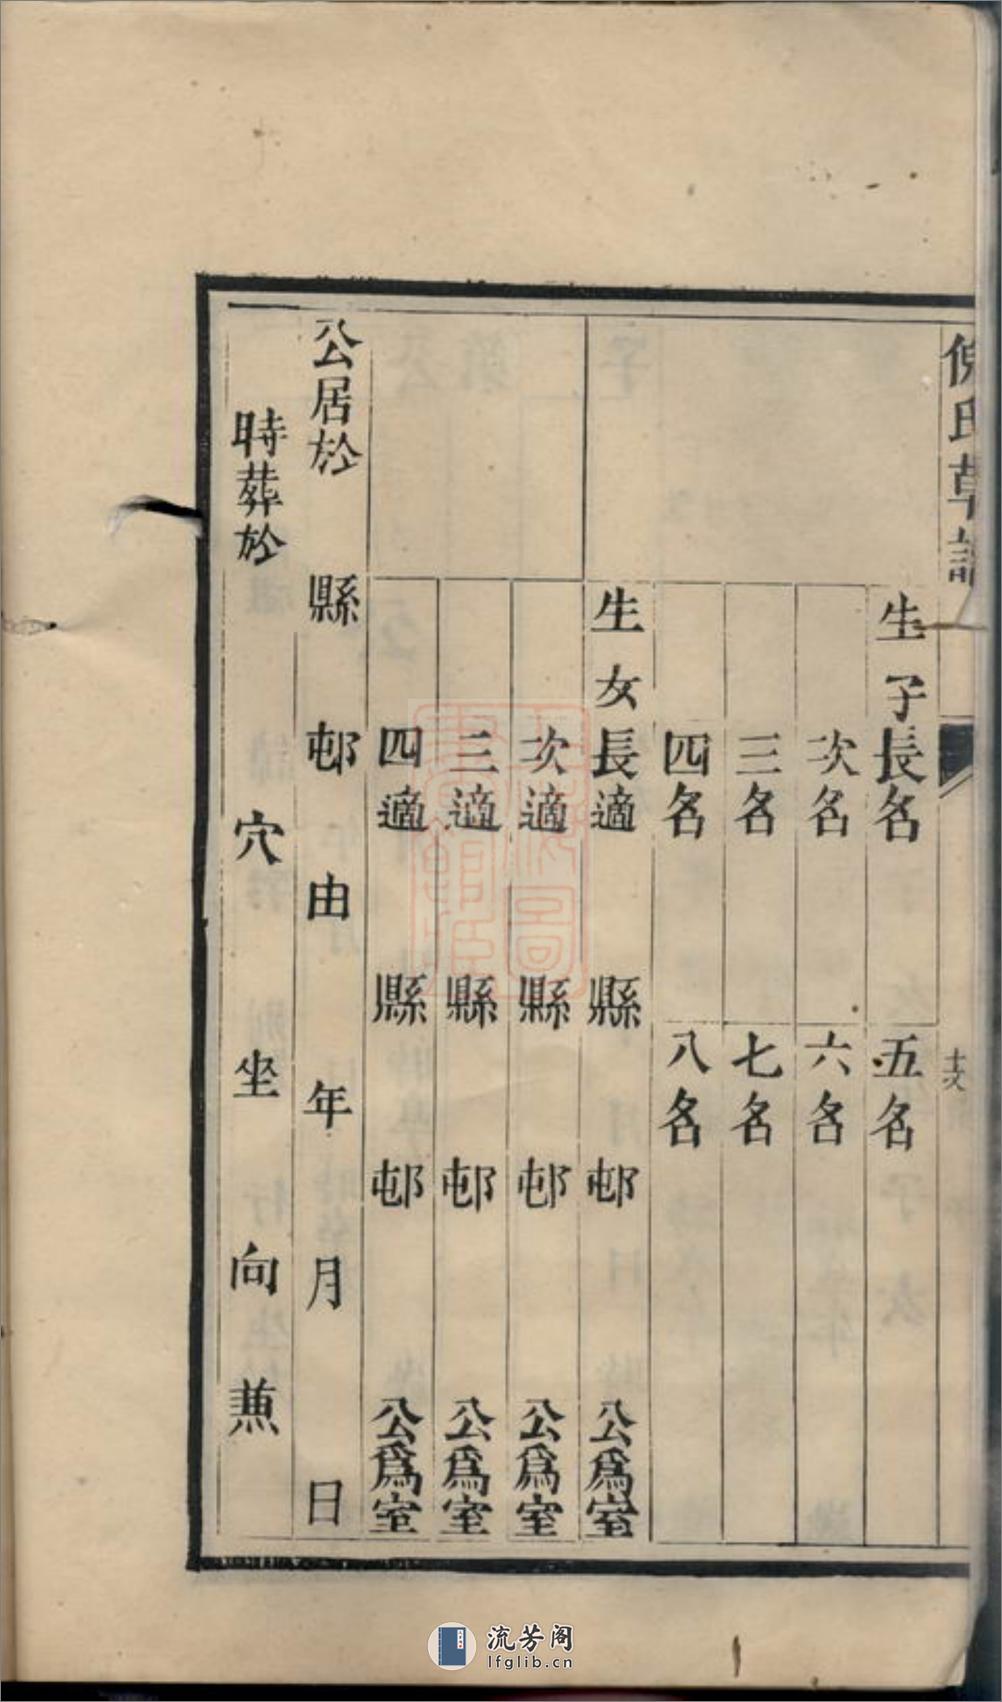 氏草譜
生子長名 五名
次名 六名
三名 七名
四名 八名
生女長適 縣 邨 公爲室
次適 縣 邨 公爲室
三適 縣 邨 公爲室
四適 縣 邨 公爲室
公居於 縣 邨 由 年 月 日
時葬於 穴 坐 向 兼
流芳阁
lfglib.cn